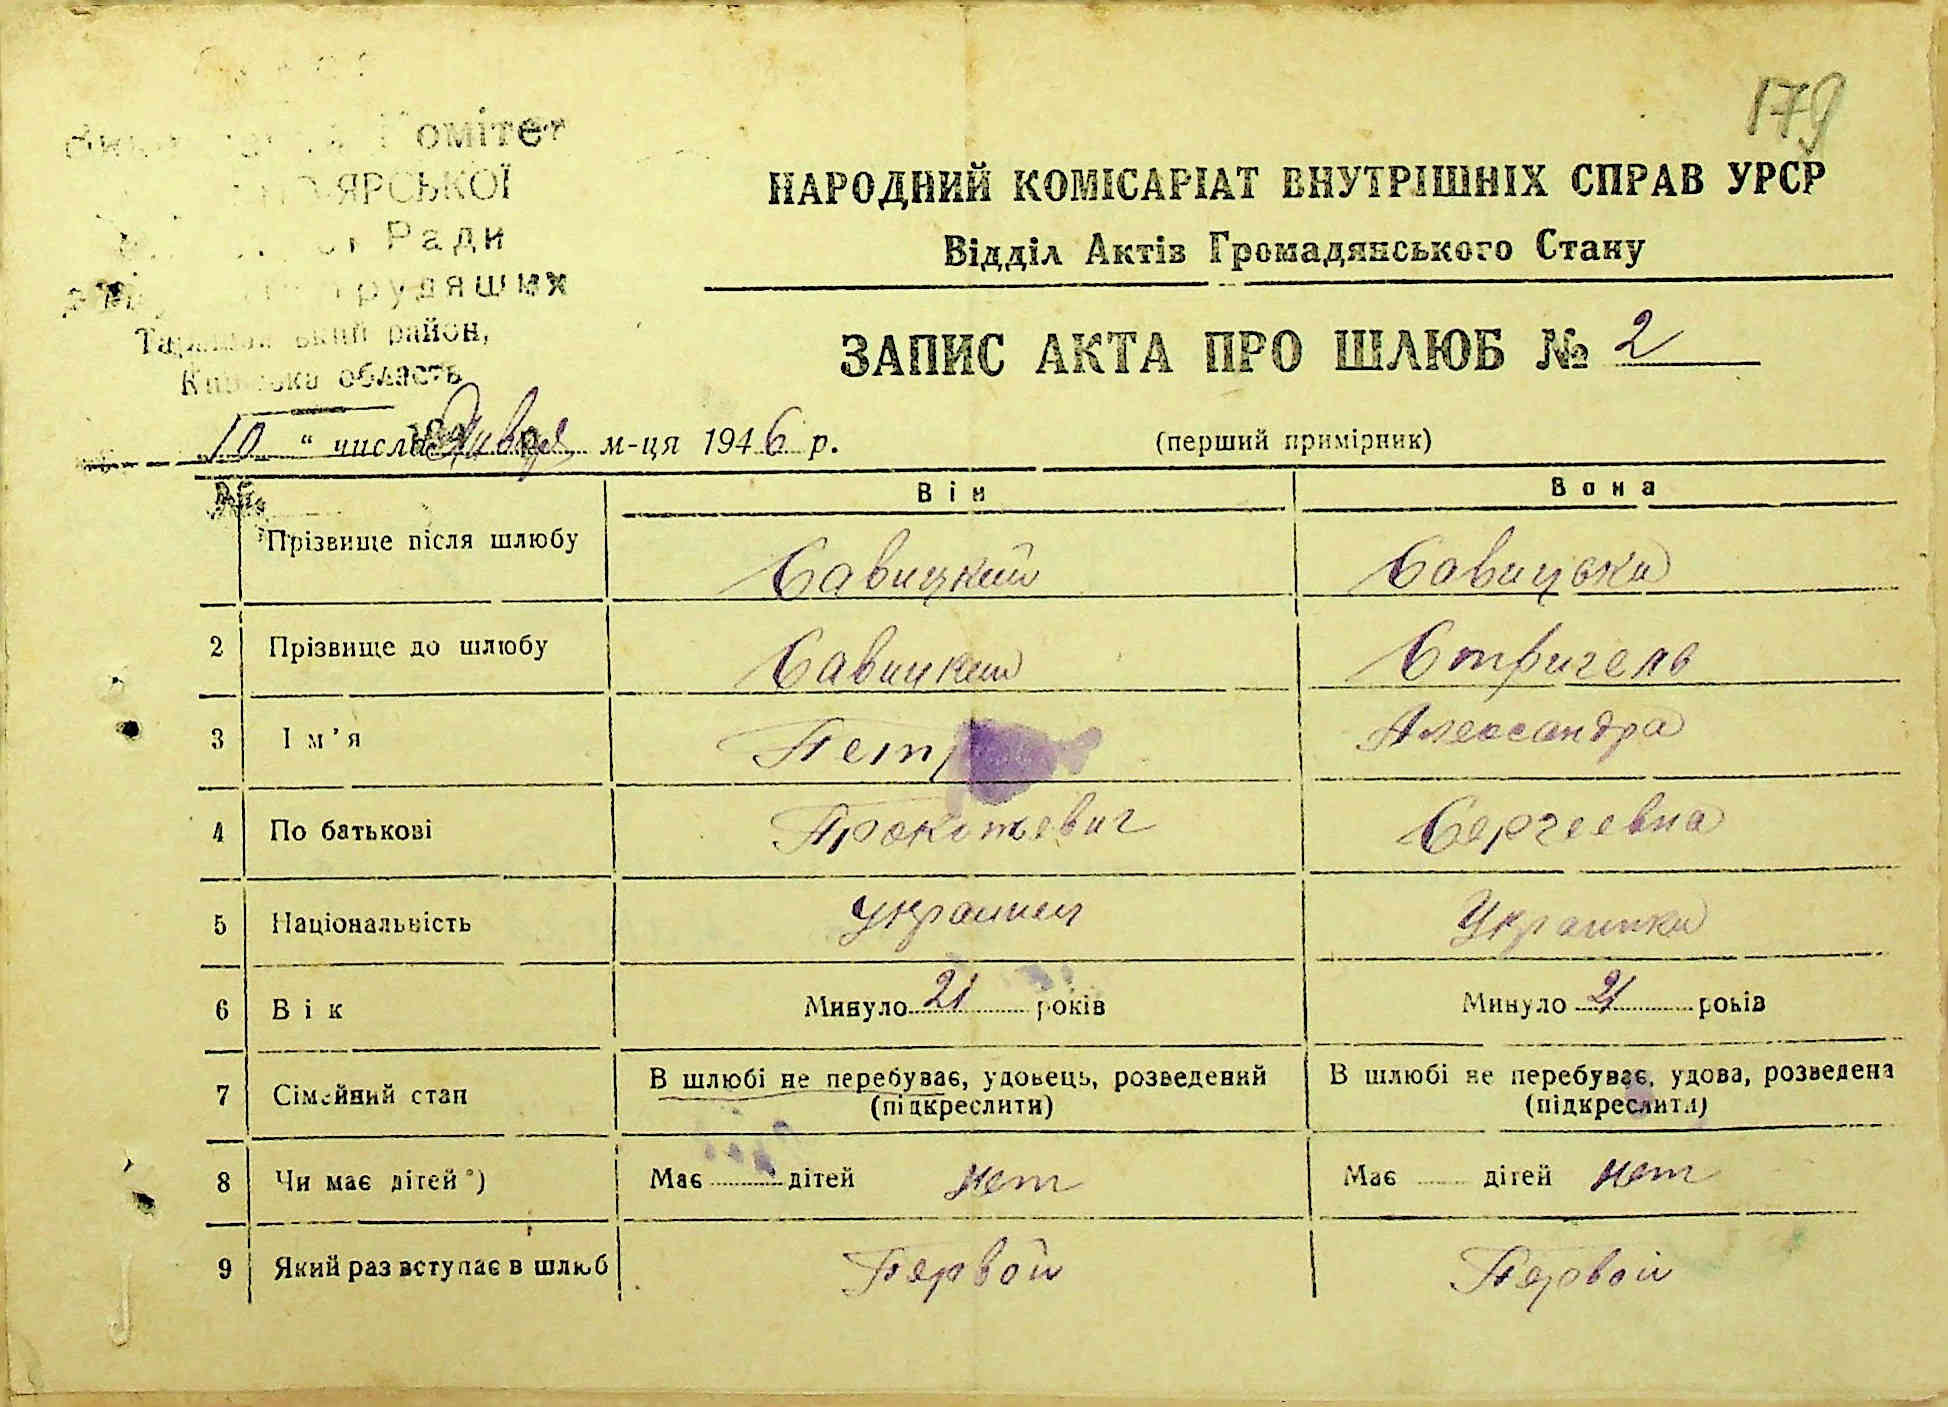 179
Комітет
ЯРСЬКОЇ
Ради
трудящих
район,
область
НАРОДНИЙ КОМІСАРІАТ ВНУТРІШНІХ СПРАВ УРСР
Відділ Актів Громадянського Стану
ЗАПИС АКТА ПРО ШЛЮБ № 2
10 " числа Января м-ця 1946 р.
(перший примірник)
Він Вона
Прізвище після шлюбу Савицкий Савицька
2 Прізвище до шлюбу Савицкий Стригель
3 Ім'я Александра
4 По батькові Сергеевна
5 Національність украинец Украинка
6 Вік Минуло 21 років Минуло 21 років
7 Сімейний стан В шлюбі не перебуває, удовець, розведений (підкреслити) В шлюбі не перебуває, удова, розведена (підкреслити)
8 Чи має дітей*) Має дітей нет Має дітей нет
9 Який раз вступає в шлюб Первой Первой